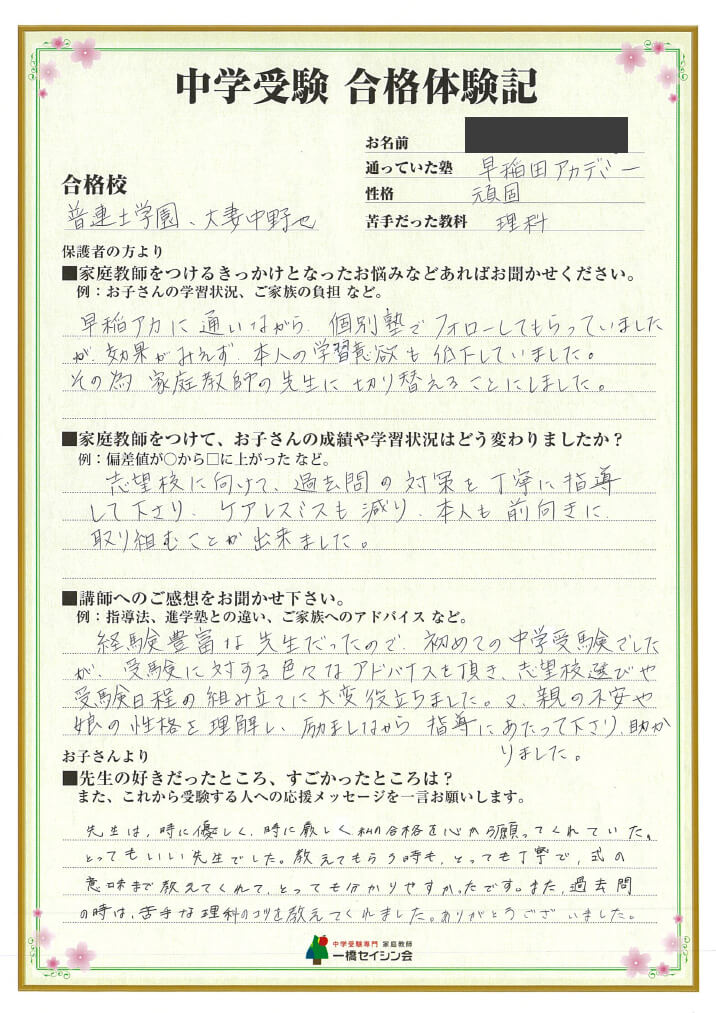 中学受験 合格体験記
お名前
通っていた塾 早稲田アカデミー
合格校
性格 頑固
普連土学園、大妻中野他
苦手だった教科 理科
保護者の方より
■家庭教師をつけるきっかけとなったお悩みなどあればお聞かせください。
例：お子さんの学習状況、ご家族の負担 など。
早稲アカに通いながら、個別塾でフォローしてもらっていました
が、効果がみえず、本人の学習意欲も低下していました。
その為 家庭教師の先生に切り替えることにしました。
■家庭教師をつけて、お子さんの成績や学習状況はどう変わりましたか？
例：偏差値が○から□に上がった など。
志望校に向けて、過去問の対策を丁寧に指導
して下さり、ケアレスミスも減り、本人も前向きに
取り組むことが出来ました。
■講師へのご感想をお聞かせ下さい。
例：指導法、進学塾との違い、ご家族へのアドバイス など。
経験豊富な先生だったので、初めての中学受験でした
が、受験に対する色々なアドバイスを頂き、志望校選びや
受験日程の組み立てに大変役立ちました。又、親の不安や
娘の性格を理解し、励ましながら指導にあたって下さり、助か
りました。
お子さんより
■先生の好きだったところ、すごかったところは？
また、これから受験する人への応援メッセージを一言お願いします。
先生は、時に優しく、時に厳しく私の合格を心から願ってくれていた。
とってもいい先生でした。教えてもらう時も、とっても丁寧で、式の
意味まで教えてくれて、とっても分かりやすかったです。また、過去問
の時は、苦手な理科のコツを教えてくれました。ありがとうございました。
中学受験専門 家庭教師
一橋セイシン会